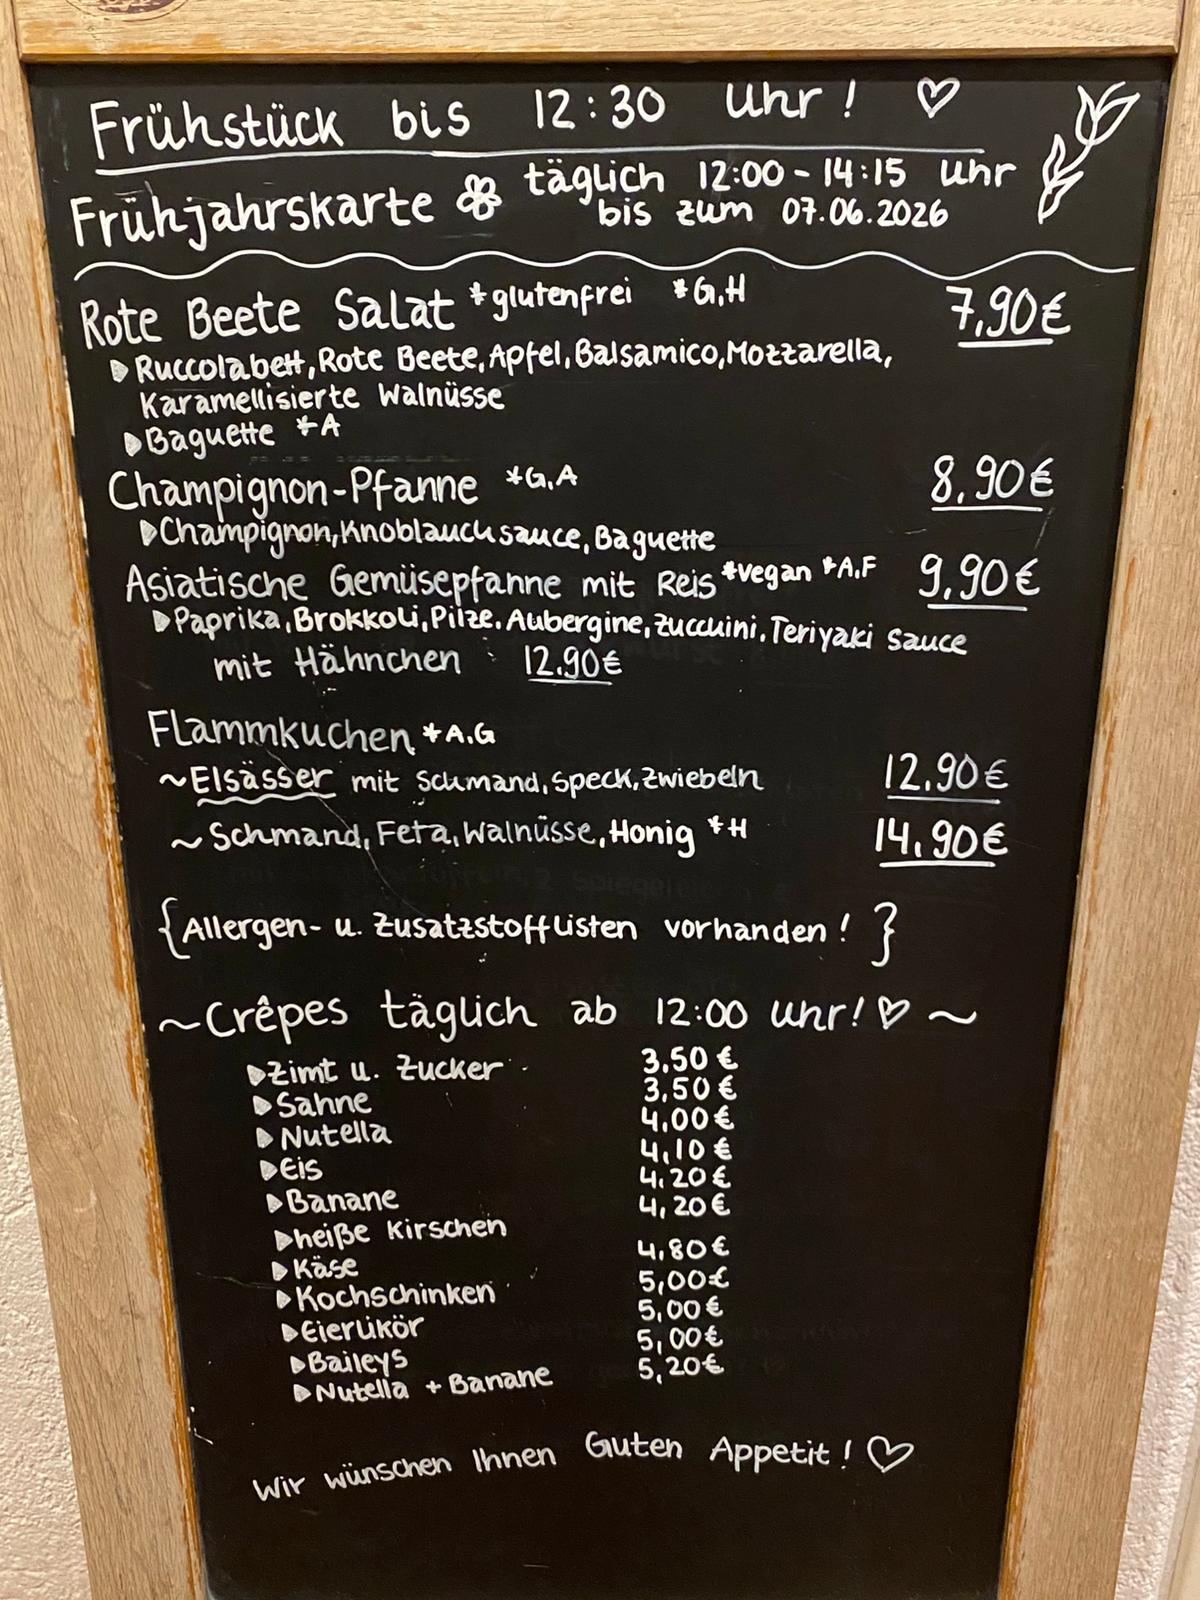 Frühstück bis 12:30 Uhr! ♡
Frühjahrskarte täglich 12:00-14:15 Uhr
bis zum 07.06.2026
Rote Beete Salat *glutenfrei *G,H 7,90€
Ruccolabett, Rote Beete, Apfel, Balsamico, Mozzarella,
Karamellisierte Walnüsse
Baguette *A
Champignon-Pfanne *G,A 8,90€
Champignon, Knoblauchsauce, Baguette
Asiatische Gemüsepfanne mit Reis *vegan *A,F 9,90€
Paprika, Brokkoli, Pilze, Aubergine, Zucchini, Teriyaki Sauce
mit Hähnchen 12,90€
Flammkuchen *A,G
~Elsässer mit Schmand, Speck, Zwiebeln 12,90€
~Schmand, Feta, Walnüsse, Honig *H 14,90€
{Allergen- u. Zusatzstofflisten vorhanden!}
~Crêpes täglich ab 12:00 Uhr! ♡ ~
Zimt u. Zucker 3,50€
Sahne 3,50€
Nutella 4,00€
Eis 4,10€
Banane 4,20€
heiße Kirschen 4,20€
Käse 4,80€
Kochschinken 5,00€
Eierlikör 5,00€
Baileys 5,00€
Nutella + Banane 5,20€
Wir wünschen Ihnen Guten Appetit! ♡